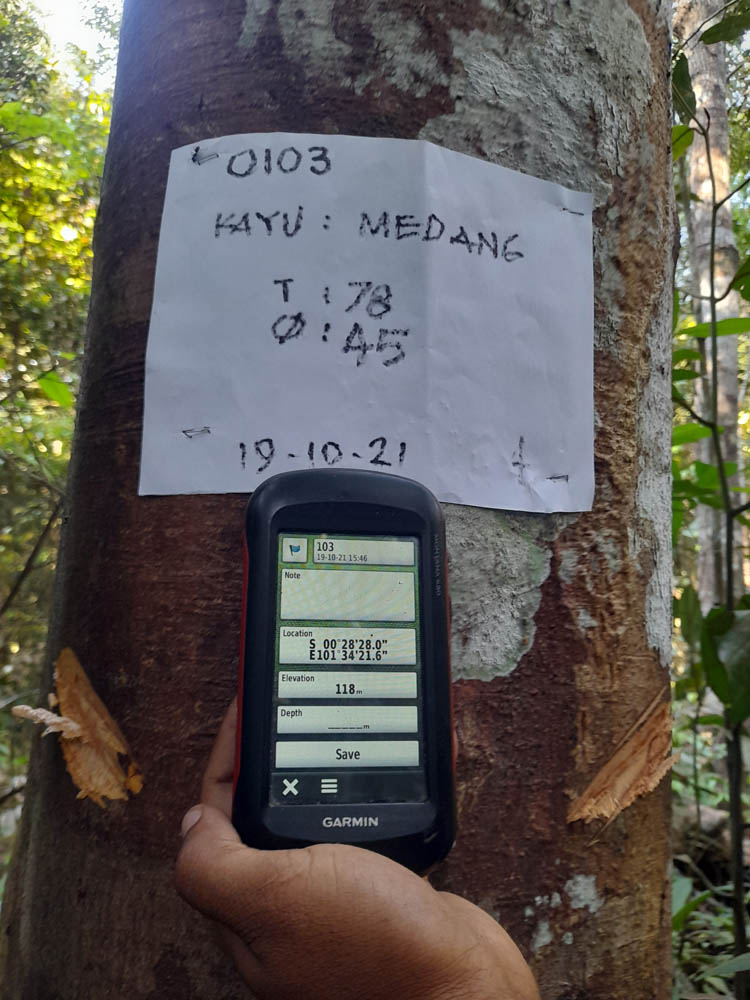 0103
KAYU : MEDANG
T : 78
Ø : 45
19-10-21
103
19-10-21 15:46
Note
Location
S 00°28'28.0"
E101°34'21.6"
Elevation
118 m
Depth
_____m
Save
GARMIN